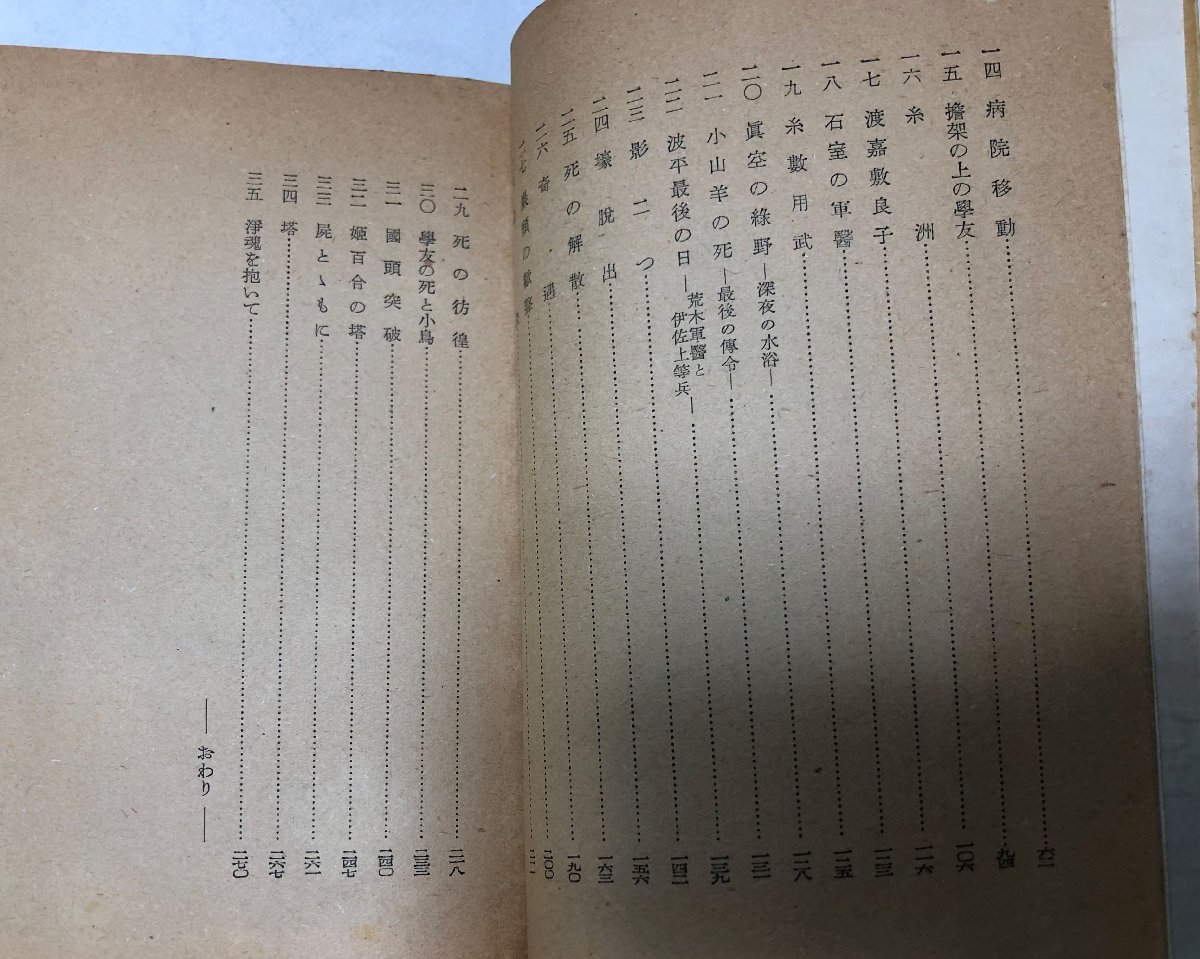 一四 病院移動…………六二
一五 擔架の上の學友…………九四
一六 糸洲…………一〇六
一七 渡嘉敷良子…………一一六
一八 石室の軍醫…………一二三
一九 糸數用武…………一二五
二〇 眞空の綠野―深夜の水浴―…………一二八
二一 小山羊の死―最後の傳令―…………一三二
二二 波平最後の日―荒木軍醫と伊佐上等兵―…………一三九
二三 影二つ…………一四二
二四 壕脫出…………一五六
二五 死の解散…………一六三
二六 奇遇…………一九〇
二七
二〇〇
二九 死の彷徨…………二一八
三〇 學友の死と小鳥…………二三三
三一 國頭突破…………二四〇
三二 姬百合の塔…………二四七
三三 屍とゝもに…………二六一
三四 塔…………二六七
三五 淨魂を抱いて…………二七〇
―おわり―